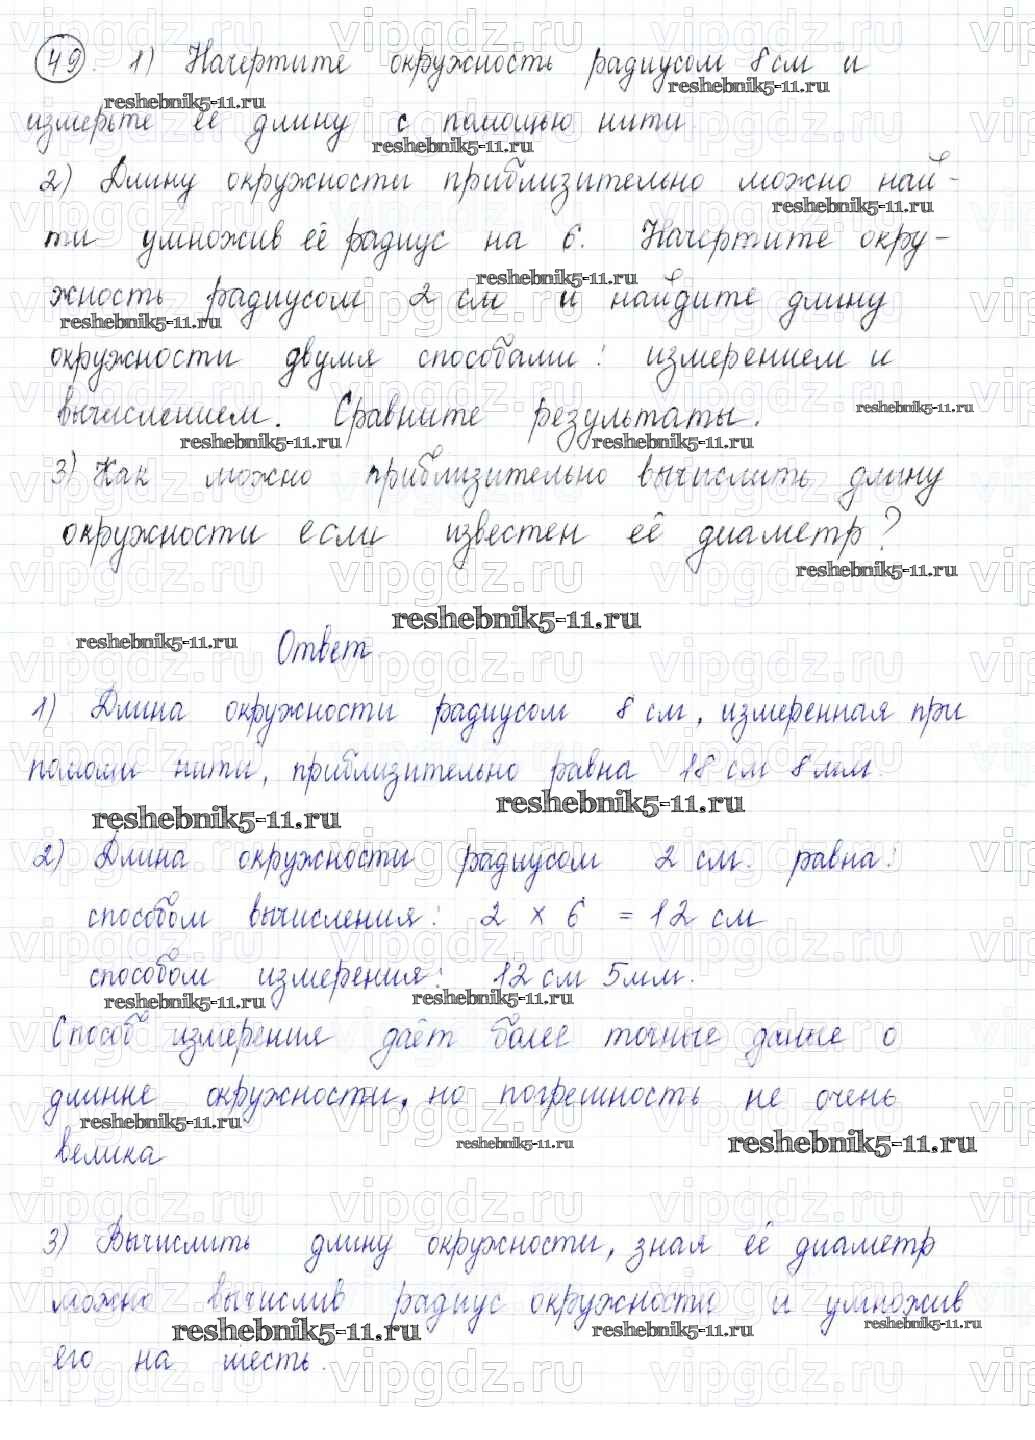 49. 1) Начертите окружность радиусом 8 см и
измерьте её длину с помощью нити
2) Длину окружности приблизительно можно най-
ти умножив её радиус на 6. Начертите окру-
жность радиусом 2 см и найдите длину
окружности двумя способами: измерением и
вычислением. Сравните результаты.
3) Как можно приблизительно вычислить длину
окружности если известен её диаметр?
reshebnik5-11.ru
Ответ.
1) Длина окружности радиусом 8 см, измеренная при
помощи нити, приблизительно равна 18 см 8 мм.
reshebnik5-11.ru
2) Длина окружности радиусом 2 см. равна:
способом вычисления: 2 × 6 = 12 см
способом измерения: 12 см 5 мм.
Способ измерения даёт более точные данные о
длинне окружности, но погрешность не очень
велика
reshebnik5-11.ru
3) Вычислить длину окружности, зная её диаметр
можно вычислив радиус окружности и умножив
его на шесть.
vipgdz.ru